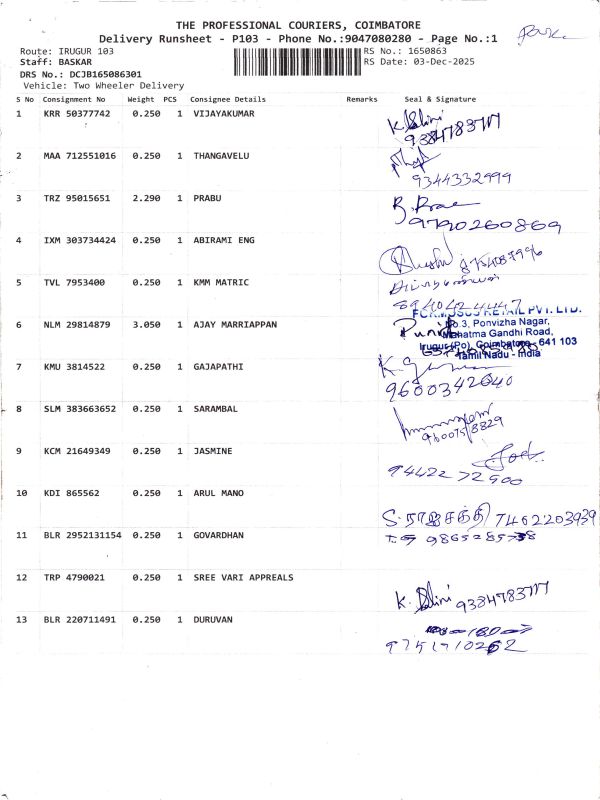 THE PROFESSIONAL COURIERS, COIMBATORE
Delivery Runsheet - P103 - Phone No.:9047080280 - Page No.:1
Route: IRUGUR 103
RS No.: 1650863
Staff: BASKAR
RS Date: 03-Dec-2025
DRS No.: DCJB165086301
Vehicle: Two Wheeler Delivery
S No Consignment No Weight PCS Consignee Details Remarks Seal & Signature
1 KRR 50377742 0.250 1 VIJAYAKUMAR
K.
2 MAA 712551016 0.250 1 THANGAVELU
9344332999
3 TRZ 95015651 2.290 1 PRABU
9790260869
4 IXM 303734424 0.250 1 ABIRAMI ENG
5 TVL 7953400 0.250 1 KMM MATRIC
6 NLM 29814879 3.050 1 AJAY MARRIAPPAN
No.3, Ponvizha Nagar,
Mahatma Gandhi Road,
Irugur (Po), Coimbatore - 641 103
Tamil Nadu - India
7 KMU 3814522 0.250 1 GAJAPATHI
9600342640
8 SLM 383663652 0.250 1 SARAMBAL
9 KCM 21649349 0.250 1 JASMINE
94422 72500
10 KDI 865562 0.250 1 ARUL MANO
7402203939
11 BLR 2952131154 0.250 1 GOVARDHAN
12 TRP 4790021 0.250 1 SREE VARI APPREALS
K.
13 BLR 220711491 0.250 1 DURUVAN